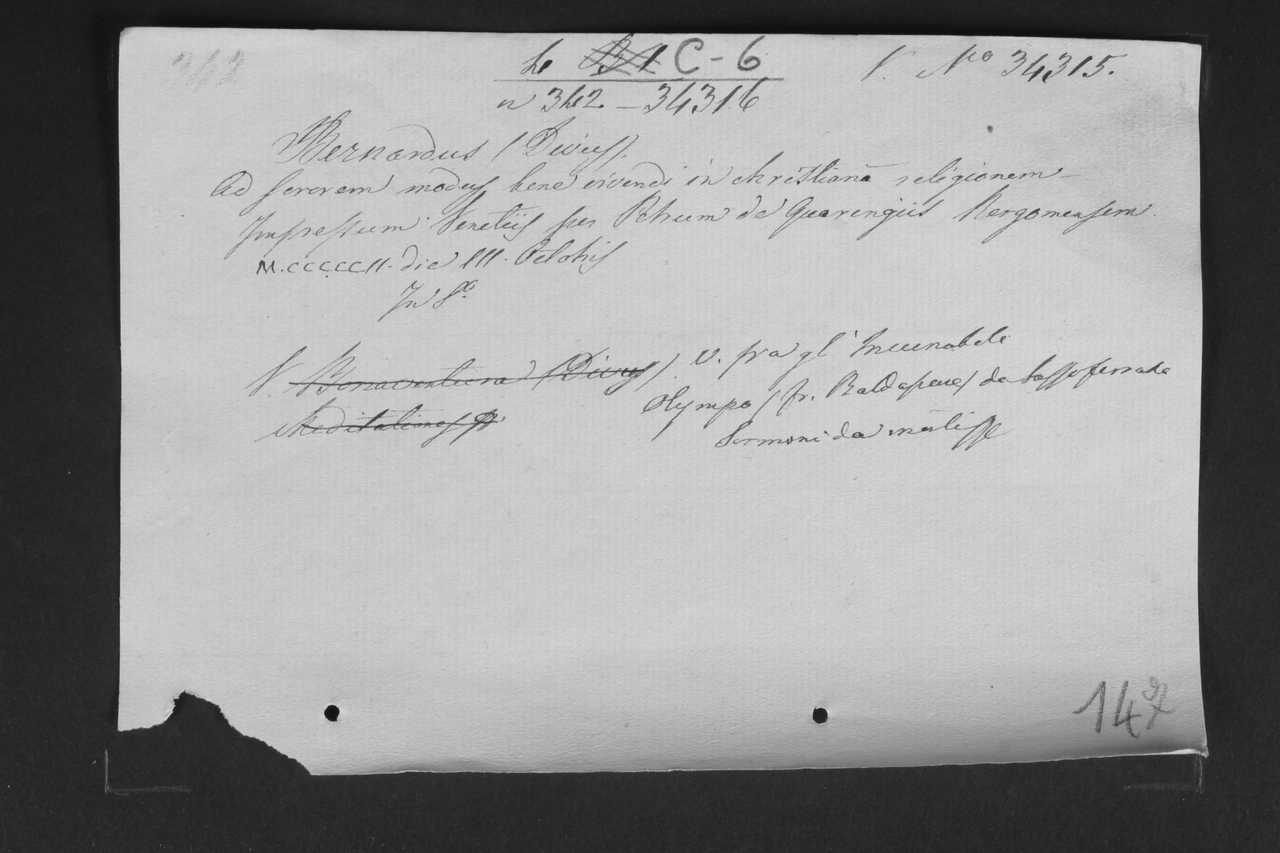 342
h C-6 V. No 34315.
n 342 - 34316
Bernardus (Divus).
Ad sororem modus bene vivendi in christianā religionem -
Impressum Venetiis per Petrum de Quarengiis Bergomensem.
M.CCCCCII. die III. Octobris
In 8º
V. Bonaventura (Divus). V. fra gl' Incunaboli
Meditationes Olympo (fr. Baldassare) da Sassoferrato
Sermoni da morti
147